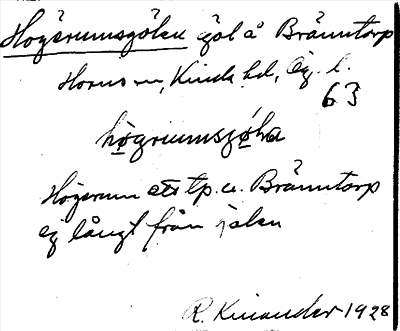 Högerumsgölen göl å Bränntorp
Horns sn, Kinda hd, Ög. l.
63
högrumsgöḷa
Högerum ett tp. u. Bränntorp
ej långt från gölen
R. Kinander 1928